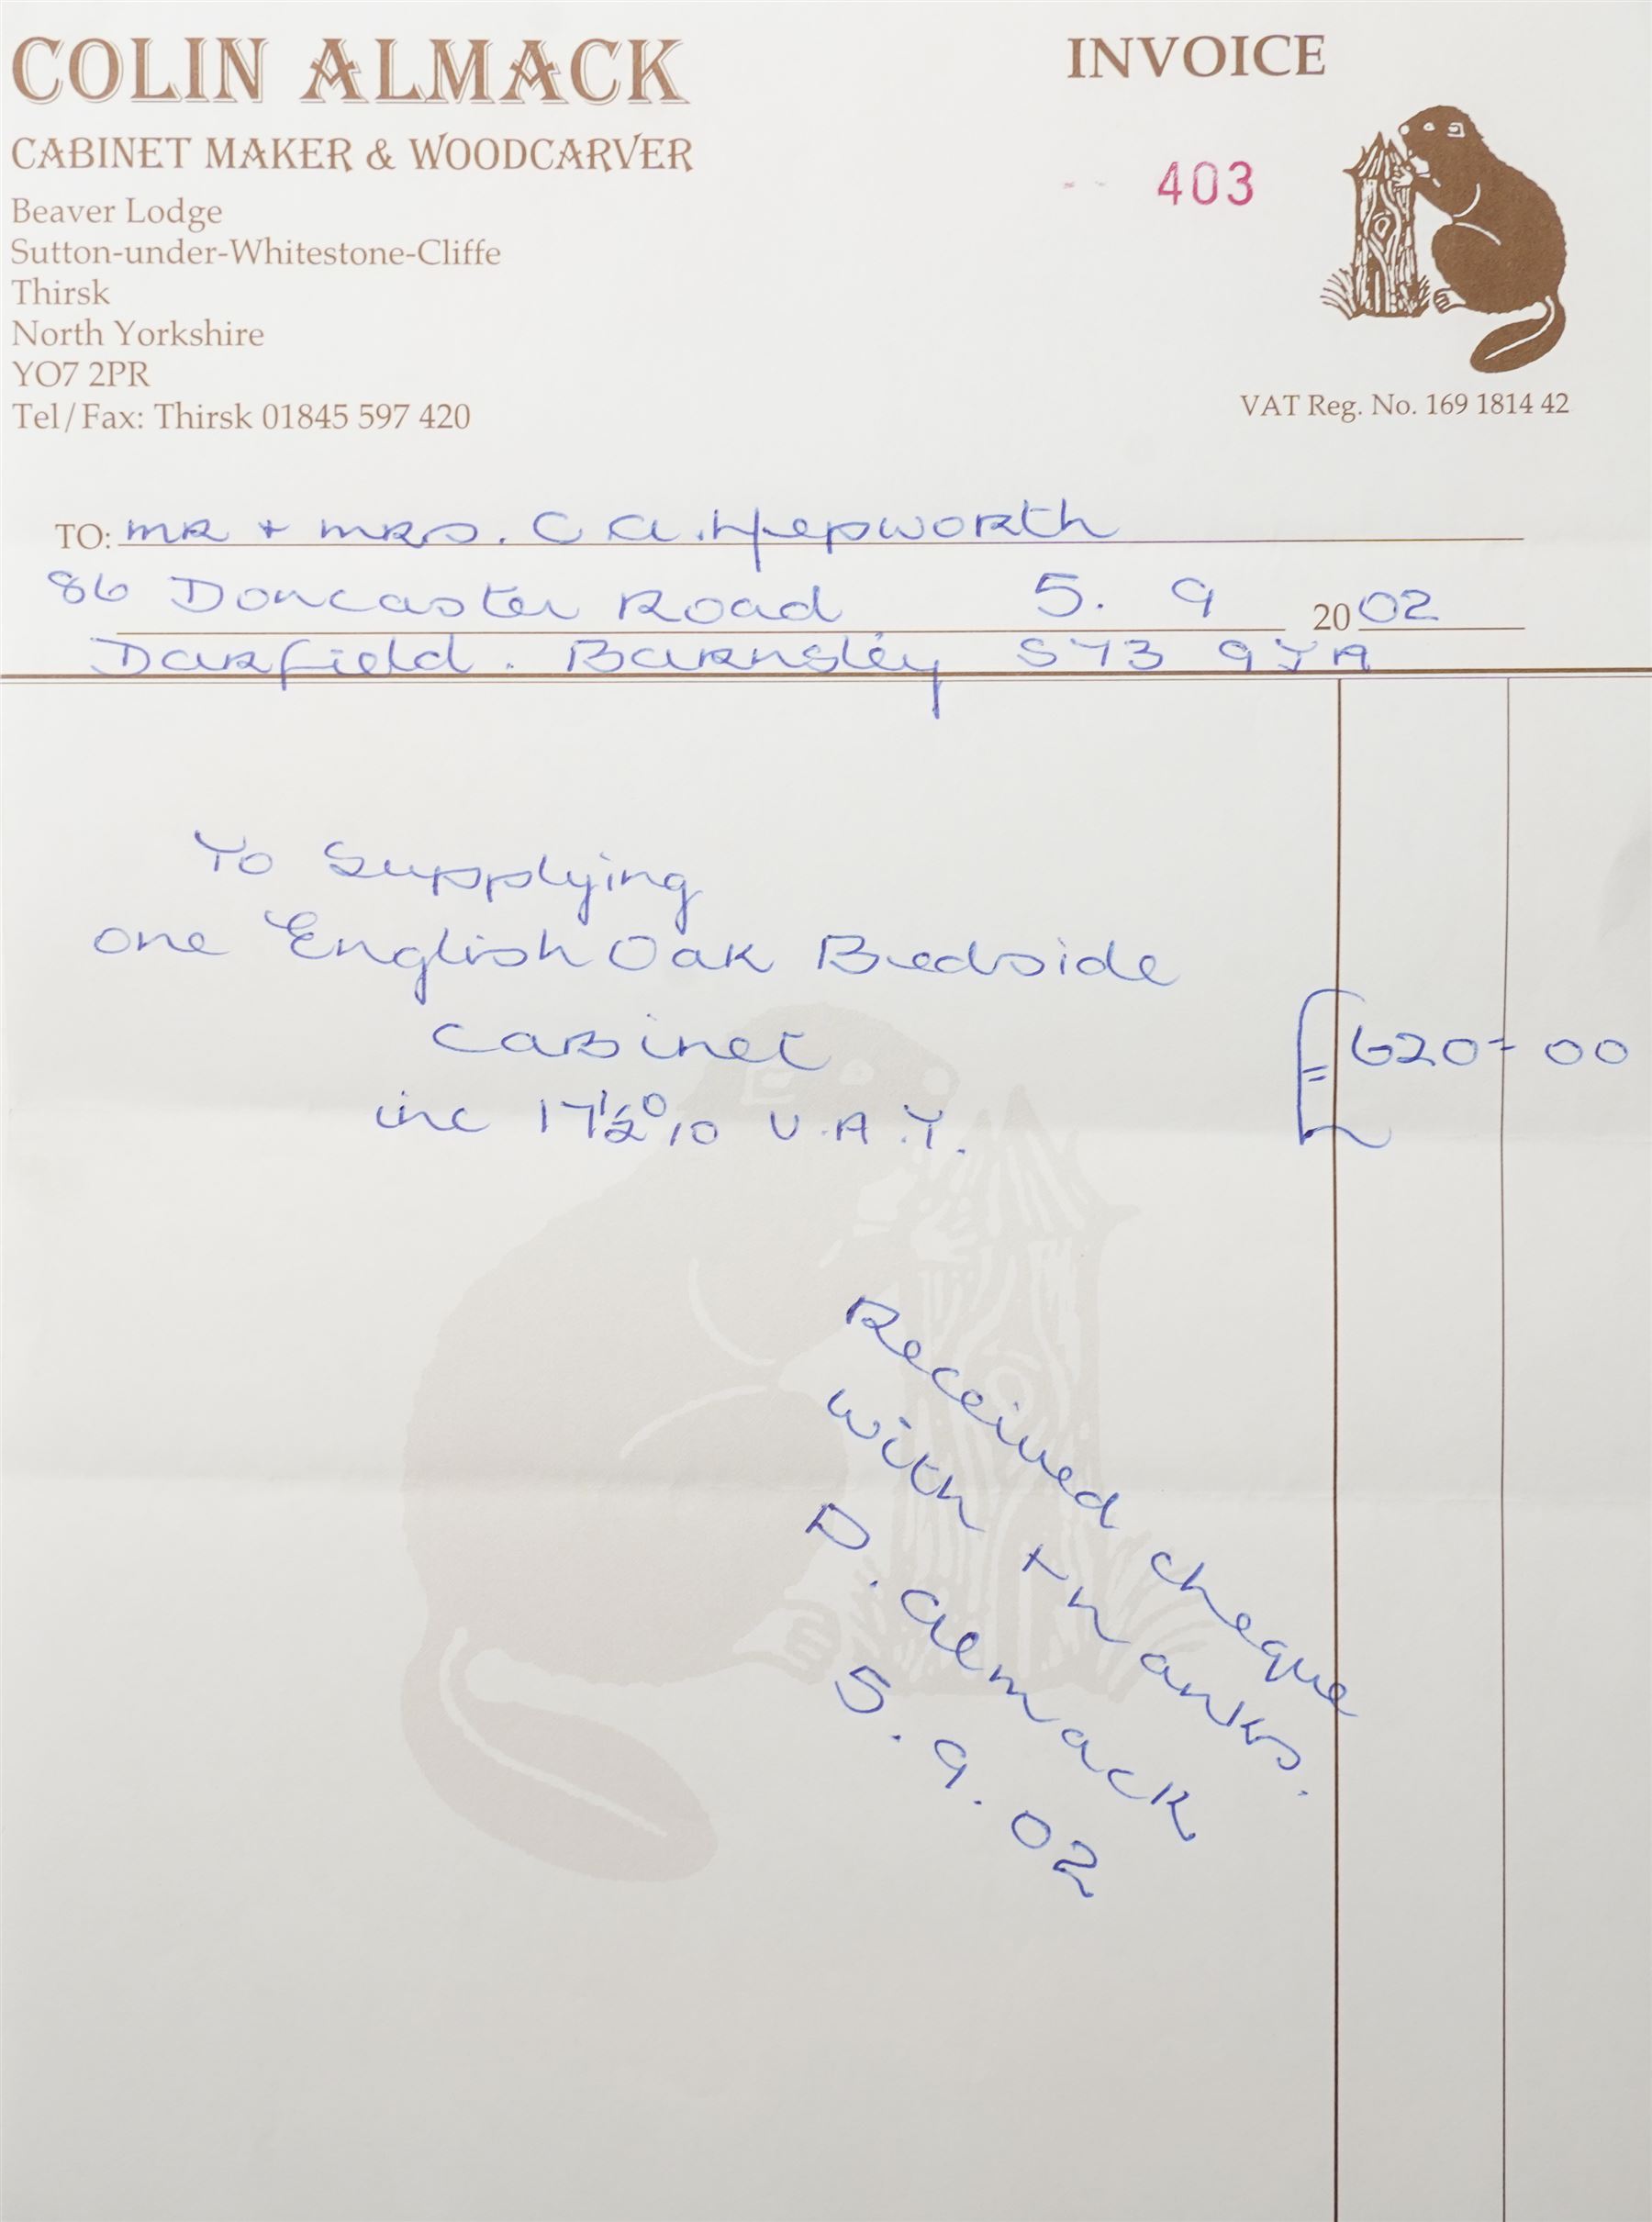 COLIN ALMACK
INVOICE
CABINET MAKER & WOODCARVER
403
Beaver Lodge
Sutton-under-Whitestone-Cliffe
Thirsk
North Yorkshire
YO7 2PR
Tel/Fax: Thirsk 01845 597 420
VAT Reg. No. 169 1814 42
TO: MR + MRS. C A. Hepworth
86 Doncaster Road 5. 9 2002
Darfield. Barnsley S73 9JA
To Supplying
one English Oak Bedside
Cabinet
inc 17½% V.A.T.
£620=00
Received cheque
with thanks.
D. Almack
5.9.02